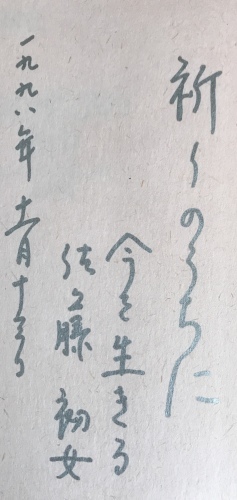 祈りのうちに
今を生きる
佐藤初女
一九九八年十一月十三日